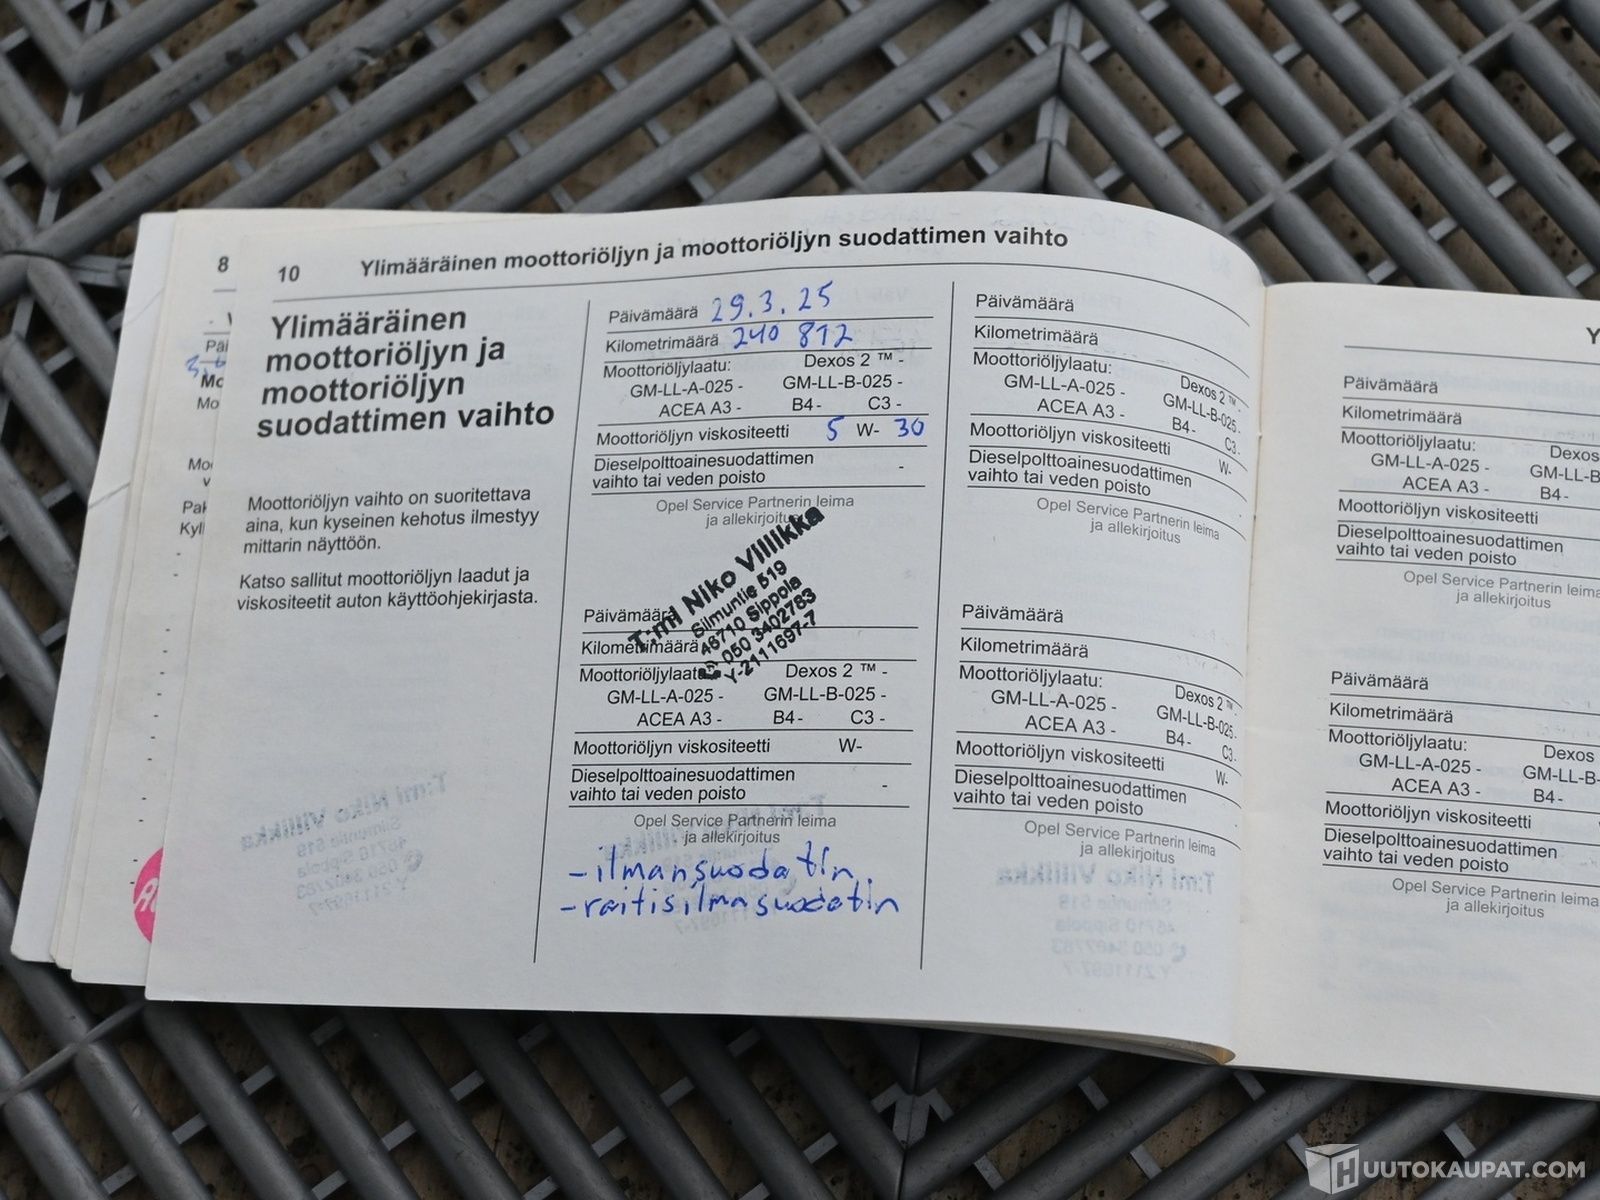 8
10 Ylimääräinen moottoriöljyn ja moottoriöljyn suodattimen vaihto
Ylimääräinen
moottoriöljyn ja
moottoriöljyn
suodattimen vaihto
Moottoriöljyn vaihto on suoritettava
aina, kun kyseinen kehotus ilmestyy
mittarin näyttöön.
Katso sallitut moottoriöljyn laadut ja
viskositeetit auton käyttöohjekirjasta.
Päivämäärä 29.3.25
Kilometrimäärä 240 812
Moottoriöljylaatu: Dexos 2 ™ -
GM-LL-A-025 - GM-LL-B-025 -
ACEA A3 - B4- C3 -
Moottoriöljyn viskositeetti 5 W- 30
Dieselpolttoainesuodattimen
vaihto tai veden poisto -
Opel Service Partnerin leima
ja allekirjoitus
T:mi Niko Villikka
Silmuntie 519
46710 Sippola
050 3402783
Y-2111697-7
Päivämäärä
Kilometrimäärä
Moottoriöljylaatu: Dexos 2 ™ -
GM-LL-A-025 - GM-LL-B-025 -
ACEA A3 - B4- C3 -
Moottoriöljyn viskositeetti W-
Dieselpolttoainesuodattimen
vaihto tai veden poisto -
Opel Service Partnerin leima
ja allekirjoitus
- ilmansuodatin.
- raitisilmasuodatin
Päivämäärä
Kilometrimäärä
Moottoriöljylaatu: Dexos 2 ™ -
GM-LL-A-025 - GM-LL-B-025 -
ACEA A3 - B4- C3-
Moottoriöljyn viskositeetti W-
Dieselpolttoainesuodattimen
vaihto tai veden poisto
Opel Service Partnerin leima
ja allekirjoitus
Päivämäärä
Kilometrimäärä
Moottoriöljylaatu: Dexos 2 ™
GM-LL-A-025 - GM-LL-B-025-
ACEA A3 - B4- C3-
Moottoriöljyn viskositeetti W-
Dieselpolttoainesuodattimen
vaihto tai veden poisto
Opel Service Partnerin leima
ja allekirjoitus
Päivämäärä
Kilometrimäärä
Moottoriöljylaatu: Dexos
GM-LL-A-025 - GM-LL-B-
ACEA A3 - B4-
Moottoriöljyn viskositeetti
Dieselpolttoainesuodattimen
vaihto tai veden poisto
Opel Service Partnerin leima
ja allekirjoitus
Päivämäärä
Kilometrimäärä
Moottoriöljylaatu: Dexos
GM-LL-A-025 - GM-LL-B-
ACEA A3 - B4-
Moottoriöljyn viskositeetti
Dieselpolttoainesuodattimen
vaihto tai veden poisto
Opel Service Partnerin leima
ja allekirjoitus
HUUTOKAUPAT.COM